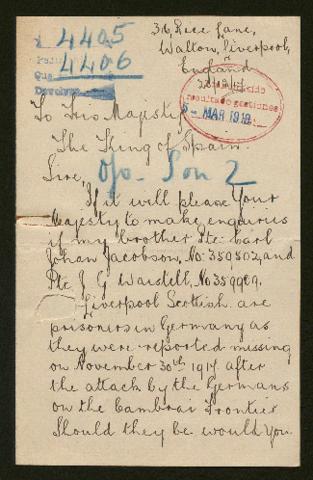 36, Rice Lane,
Walton, Liverpool,
England
4405
4406
MAR 1918
To His Majesty
The King of Spain.
Sire,
ojo - Son 2
If it will please Your
Majesty to make enquiries
if my brother Pte. Carl
Johan Jacobson, No: 359502, and
Pte. J. G. Waistell, No 359909.
Liverpool Scottish are
prisoners in Germany as
they were reported missing
on November 30th 1917. after
the attack by the Germans
on the Cambrai Frontier
Should they be would you